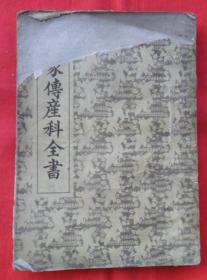 家傳產科全書